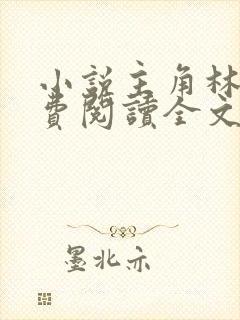 小説主角林
費閱讀全文
墨北亦